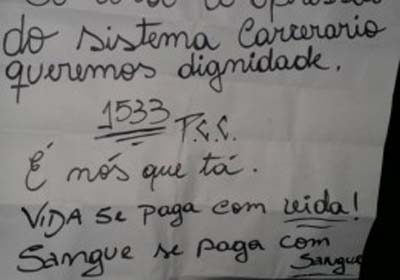 do sistema Carcerario
queremos dignidade.
1533 P.C.C.
É nós que tá.
VIDA se paga com vida!
Sangue se paga com
Sangue